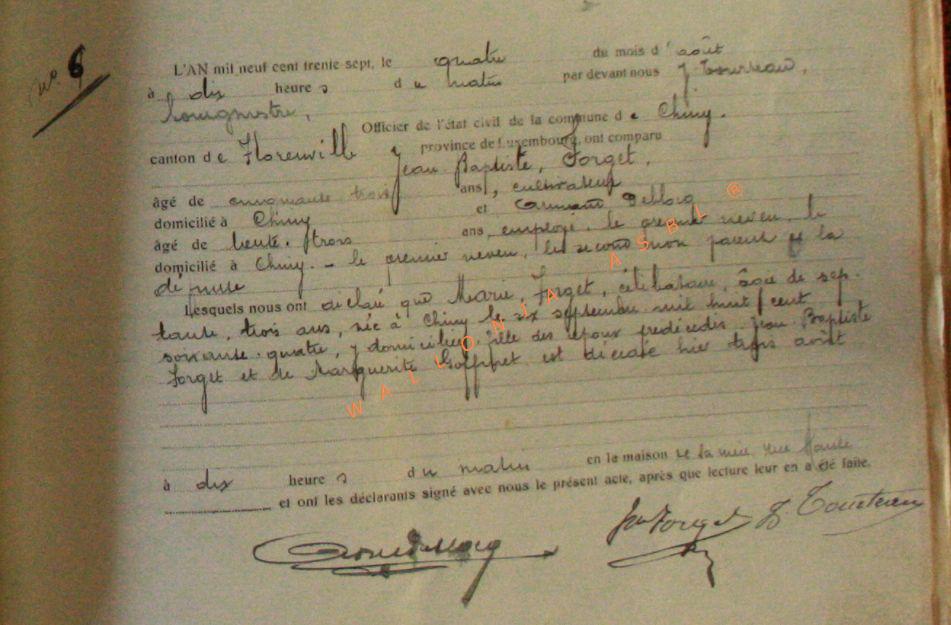 No 6
L'AN mil neuf cent trente-sept, le quatre du mois d'août
à dix heure s d u matin par devant nous J. Tourteau,
bourgmestre,
Officier de l'état civil de la commune d e Chiny.
canton d e Florenville province de Luxembourg, ont comparu
Jean Baptiste, Forget,
âgé de cinquante trois ans, cultivateur
domicilié à Chiny et Armand Deblocq
âgé de trente-trois ans, employé, le premier neveu, le
domicilié à Chiny. - le premier neveu, le second non parent de la
défunte
Lesquels nous ont déclaré que Marie, Forget, célibataire, âgée de sep-
tante, trois ans, née à Chiny le six septembre mil huit cent
soixante-quatre, y domiciliée fille des époux prédécédés, Jean Baptiste
Forget et de Marguerite Goffinet est décédée hier trois août
à dix heure s d u matin en la maison rue Haute
et ont les déclarants signé avec nous le présent acte, après que lecture leur en a été faite.
Jn Forget J. Tourteau
WALLONIA ASBL ®